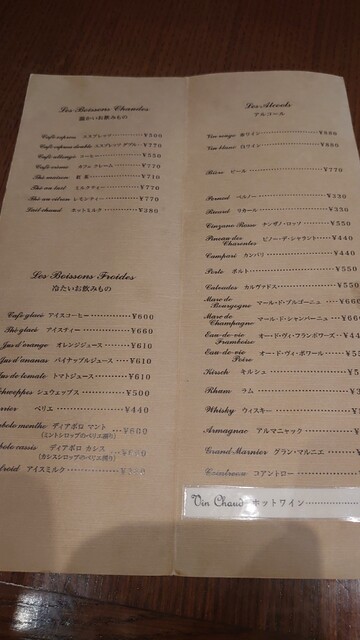 Les Boissons Chaudes
温かいお飲みもの
Café express エスプレッソ ¥500
Café express double エスプレッソ ダブル ¥770
Café allongé コーヒー ¥550
Café crème カフェ クレーム ¥770
Thé maison 紅茶 ¥710
Thé au lait ミルクティー ¥770
Thé au citron レモンティー ¥770
Lait chaud ホットミルク
Les Boissons Froides
冷たいお飲みもの
Café glacé アイスコーヒー ¥600
Thé glacé アイスティー ¥660
Jus d'orange オレンジジュース ¥610
Jus d'ananas パイナップルジュース ¥610
Jus de tomate トマトジュース ¥610
chweppes シュウェップス ¥500
rrier ペリエ ¥440
abolo menthe ディアボロ マント ¥600
(ミントシロップのペリエ割り)
abolo cassis ディアボロ カシス
(カシスシロップのペリエ割り)
froid アイスミルク
Les Alcools
アルコール
Vin rouge 赤ワイン ¥880
Vin blanc 白ワイン ¥880
Bière ビール ¥770
Pernod ペルノー ¥330
Ricard リカール ¥350
Cinzano Rosso チンザノ・ロッソ ¥550
Pineau des Charentes ピノー・デ・シャラント ¥440
Campari カンパリ ¥440
Porto ポルト ¥550
Calvados カルヴァドス ¥550
Marc de Bourgogne マール・ド・ブルゴーニュ ¥660
Marc de Champagne マール・ド・シャンパーニュ ¥66
Eau-de-vie Framboise オー・ド・ヴィ・フランボワーズ ¥44
Eau-de-vie Poire オー・ド・ヴィ・ポワール
Kirsch キルシュ
Rhum ラム
Whisky ウィスキー
Armagnac アルマニャック
Grand Marnier グラン・マルニエ
Cointreau コアントロー
Vin Chaud ホットワイン